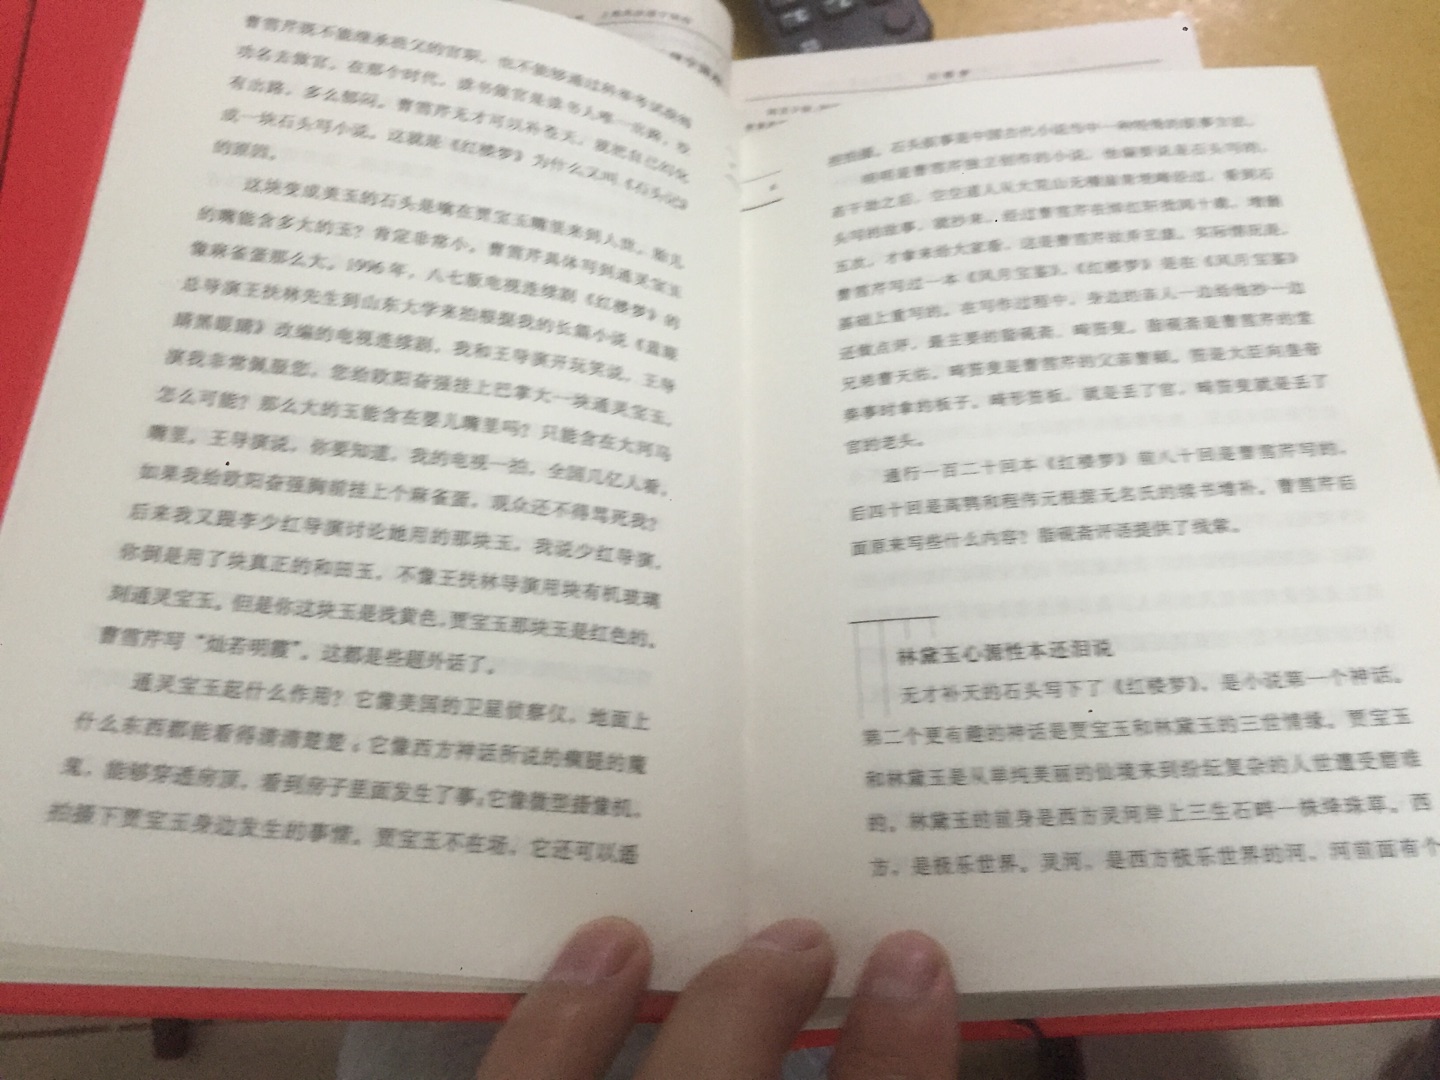 曹雪芹既不能继承祖父的官职，也不能够通过科举考试获取
功名去做官。在那个时代，读书做官是读书人唯一出路，没
有出路，多么郁闷。曹雪芹无才可以补苍天，就把自己幻化
成一块石头写小说。这就是《红楼梦》为什么又叫《石头记》
的原因。
这块变成美玉的石头是噙在贾宝玉嘴里来到人世。胎儿
的嘴能含多大的玉？肯定非常小。曹雪芹具体写到通灵宝玉
像麻雀蛋那么大。1996年，八七版电视连续剧《红楼梦》的
总导演王扶林先生到山东大学来拍根据我的长篇小说《蓝眼
睛黑眼睛》改编的电视连续剧。我和王导演开玩笑说，王导
演我非常佩服您，您给欧阳奋强挂上巴掌大一块通灵宝玉。
怎么可能？那么大的玉能含在婴儿嘴里吗？只能含在大河马
嘴里。王导演说，你要知道，我的电视一拍，全国几亿人看，
如果我给欧阳奋强胸前挂上个麻雀蛋，观众还不得骂死我？
后来我又跟李少红导演讨论她用的那块玉，我说少红导演，
你倒是用了块真正的和田玉，不像王扶林导演用块有机玻璃
到通灵宝玉。但是你这块玉是浅黄色，贾宝玉那块玉是红色的。
曹雪芹写“灿若明霞”。这都是些题外话了。
通灵宝玉起什么作用？它像美国的卫星侦察仪，地面上
什么东西都能看得清清楚楚；它像西方神话所说的瘸腿的魔
鬼，能够穿透房顶，看到房子里面发生了事；它像微型摄像机，
拍摄下贾宝玉身边发生的事情。贾宝玉不在场，它还可以遥
控拍摄。石头叙事是中国古代小说当中一种特殊的叙事方法。
明明是曹雪芹独立创作的小说，他偏要说是石头写的，
若干劫之后，空空道人从大荒山无稽崖青埂峰经过，看到石
头写的故事，就抄来，经过曹雪芹在悼红轩批阅十载，增删
五次，才拿来给大家看。这是曹雪芹故弄玄虚。实际情况是，
曹雪芹写过一本《风月宝鉴》，《红楼梦》是在《风月宝鉴》
基础上重写的。在写作过程中，身边的亲人一边给他抄一边
还做点评，最主要的脂砚斋、畸笏叟。脂砚斋是曹雪芹的堂
兄弟曹天佑，畸笏叟是曹雪芹的父亲曹頫。笏是大臣向皇帝
奏事时拿的板子。畸形笏板，就是丢了官，畸笏叟就是丢了
官的老头。
通行一百二十回本《红楼梦》前八十回是曹雪芹写的，
后四十回是高鹗和程伟元根据无名氏的续书增补。曹雪芹后
面原来写些什么内容？脂砚斋评语提供了线索。
林黛玉心源性本还泪说
无才补天的石头写下了《红楼梦》，是小说第一个神话。
第二个更有趣的神话是贾宝玉和林黛玉的三世情缘。贾宝玉
和林黛玉是从单纯美丽的仙境来到纷纭复杂的人世遭受磨难
的。林黛玉的前身是西方灵河岸上三生石畔一株绛珠草。西
方，是极乐世界。灵河，是西方极乐世界的河，河前面有个